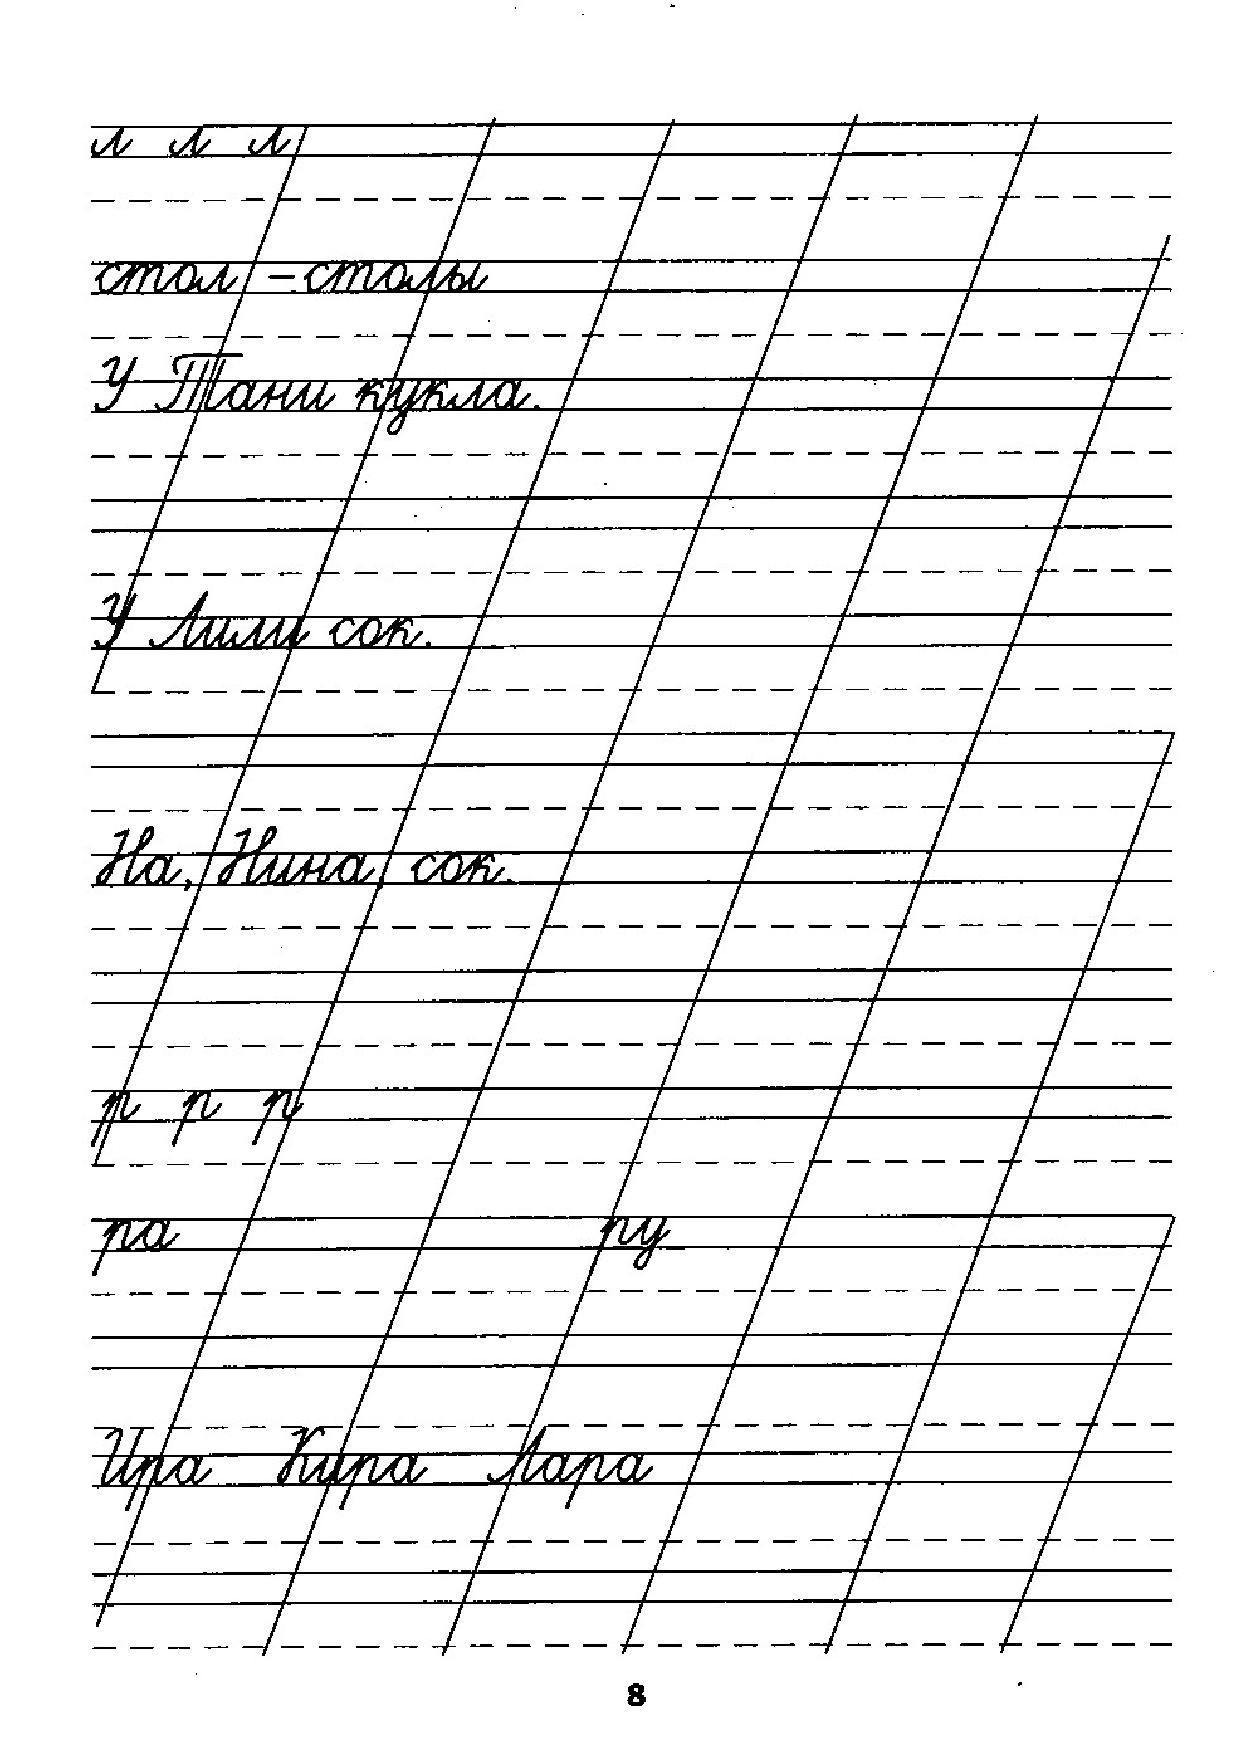 л л л
стол - столы
У Тани кукла.
У Лили сок.
На, Нина, сок.
р р р
ра ру
Ира Кира Лара
8